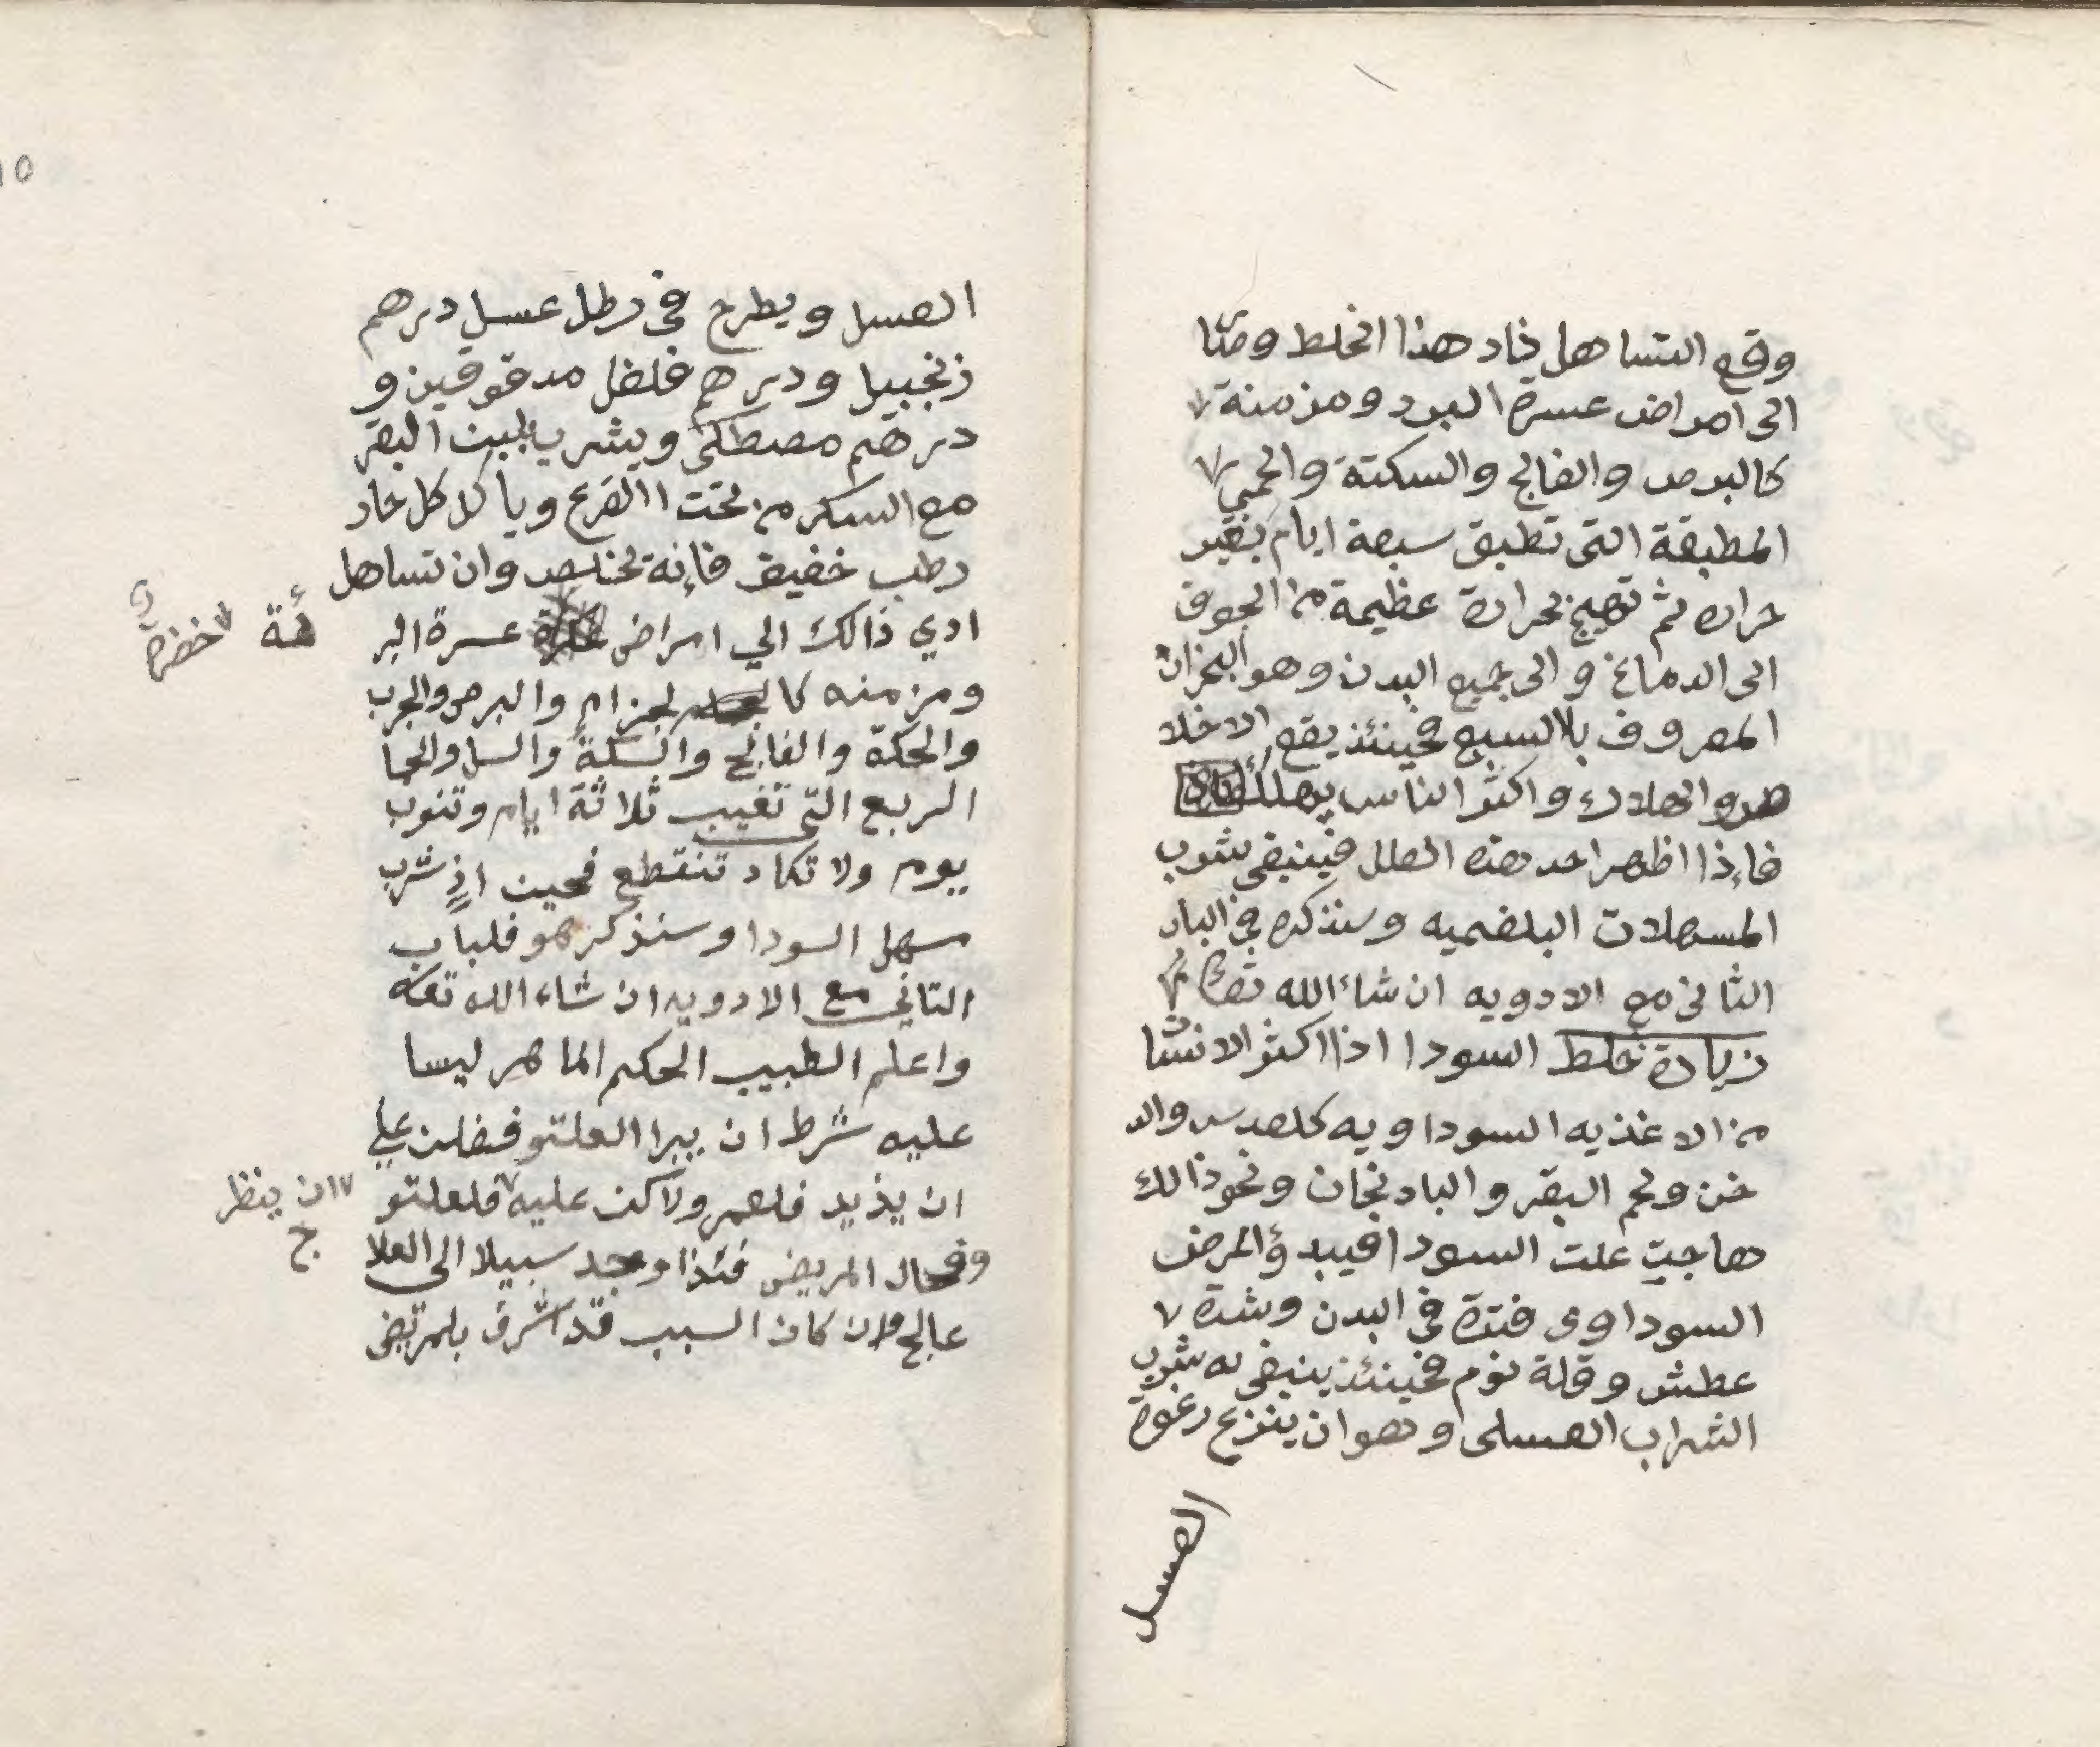 وقع التساهل زاد هذا الخلط ومتا
الى امراض عسرة البرد ومزمنة
كالبرص والفالج والسكتة والحمى
المطبقة التى تطبق سبعة ايام بغير
حراره ثم تهيج بحرارة عظيمة من الجوف
الى الدماغ والى جميع البدن وهو البحران
المعروف بلالسبع فحينئذ يقع الاخلا
هدوا الهلاك واكثر الناس يهلك
فإذا اظهر احد هذه العلل فينبغى شرب
المسهلات البلغميه وسنذكره فى الباب
الثانى مع الادويه ان شاء الله تعالى
زيادة خلط السودا اذا اكثر الانسا
من الاغذيه السوداويه كلعدس والد
خن ولحم البقر والبادنجان ونحو ذالك
هاجت علت السودا فيبدؤ المرض
السوداوى فترة فى البدن وشدة
عطش وقلة نوم فحينئذ ينبغى له شرب
الشراب العسلى وهو ان ينزع رغوة
العسل
١٥
العسل ويطرح فى رطل عسل درهم
زنجبيل ودرهم فلفل مدقوقين و
درهم مصطكى ويشرب لبن البقر
مع السكر من تحت القرع ويأكل كل حار
رطب خفيف فإنه يخلص وان تساهل
ادي ذالك الي امراض عسرة البر
ئة
خضرة
ومزمنه كا لجزام والبرص والجرب
والحكة والفالج والسكتة والسل والحما
الربع التى تغيب ثلاثة ايام وتنوب
يوم ولا تكاد تنقطع فحين اذٍ شرب
مسهل السودا وسنذكرهو فلباب
التاني مع الادويه ان شاء الله تعه
واعلم الطبيب الحكيم الماهر ليسا
عليه شرط ان يبرا العلتو فضلن علي
ان يذيد فلعمر ولاكن عليه فلعلتو
ان ينظر
ج
وفحال المريض فئذا وجد سبيلا الى العلا
عالج وان كان السبب قد اشرف بلمريض